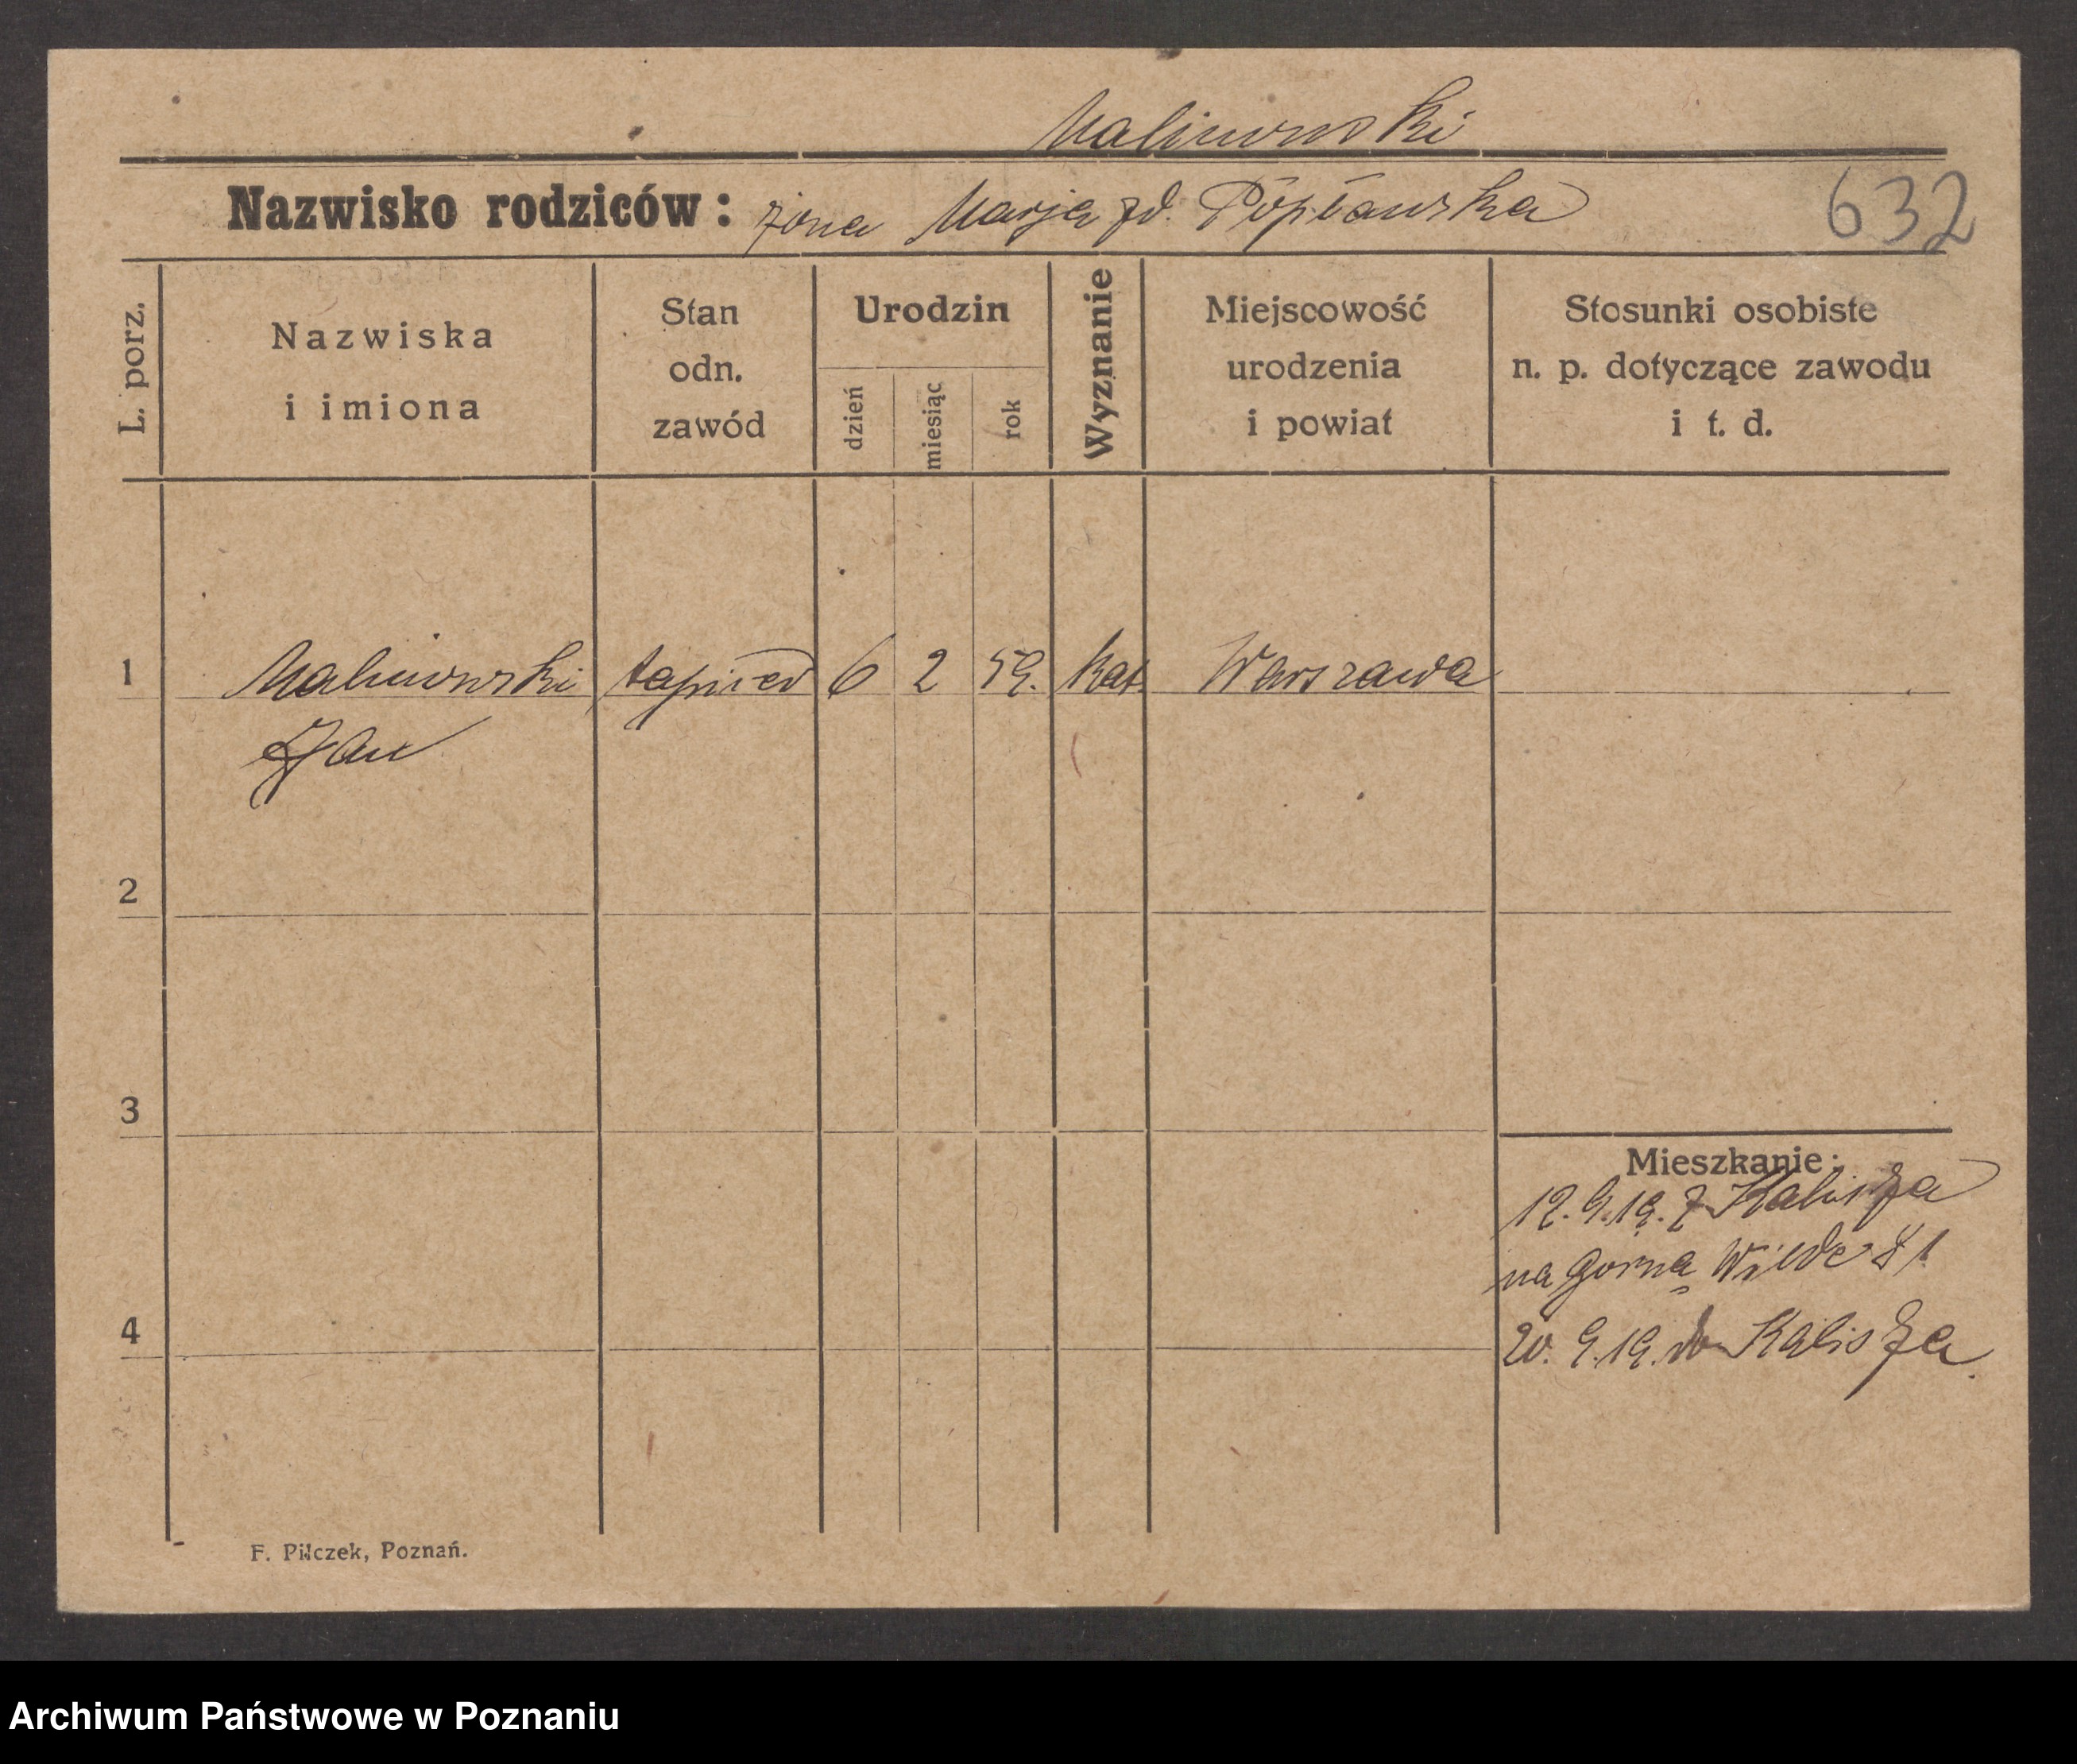 Malinowski
Nazwisko rodziców: żona Marja zd. Popławska
632
L. porz.
Nazwiska i imiona
Stan odn. zawód
Urodzin
dzień
miesiąc
rok
Wyznanie
Miejscowość urodzenia i powiat
Stosunki osobiste n. p. dotyczące zawodu i t. d.
1 Malinowski tapicer 6 2 59. kat. Warszawa
Jan
2
3
Mieszkanie:
12.9.19. z Kalisza
na Górną Wildę 81
4
20.9.19. do Kalisza.
F. Pilczek, Poznań.
Archiwum Państwowe w Poznaniu